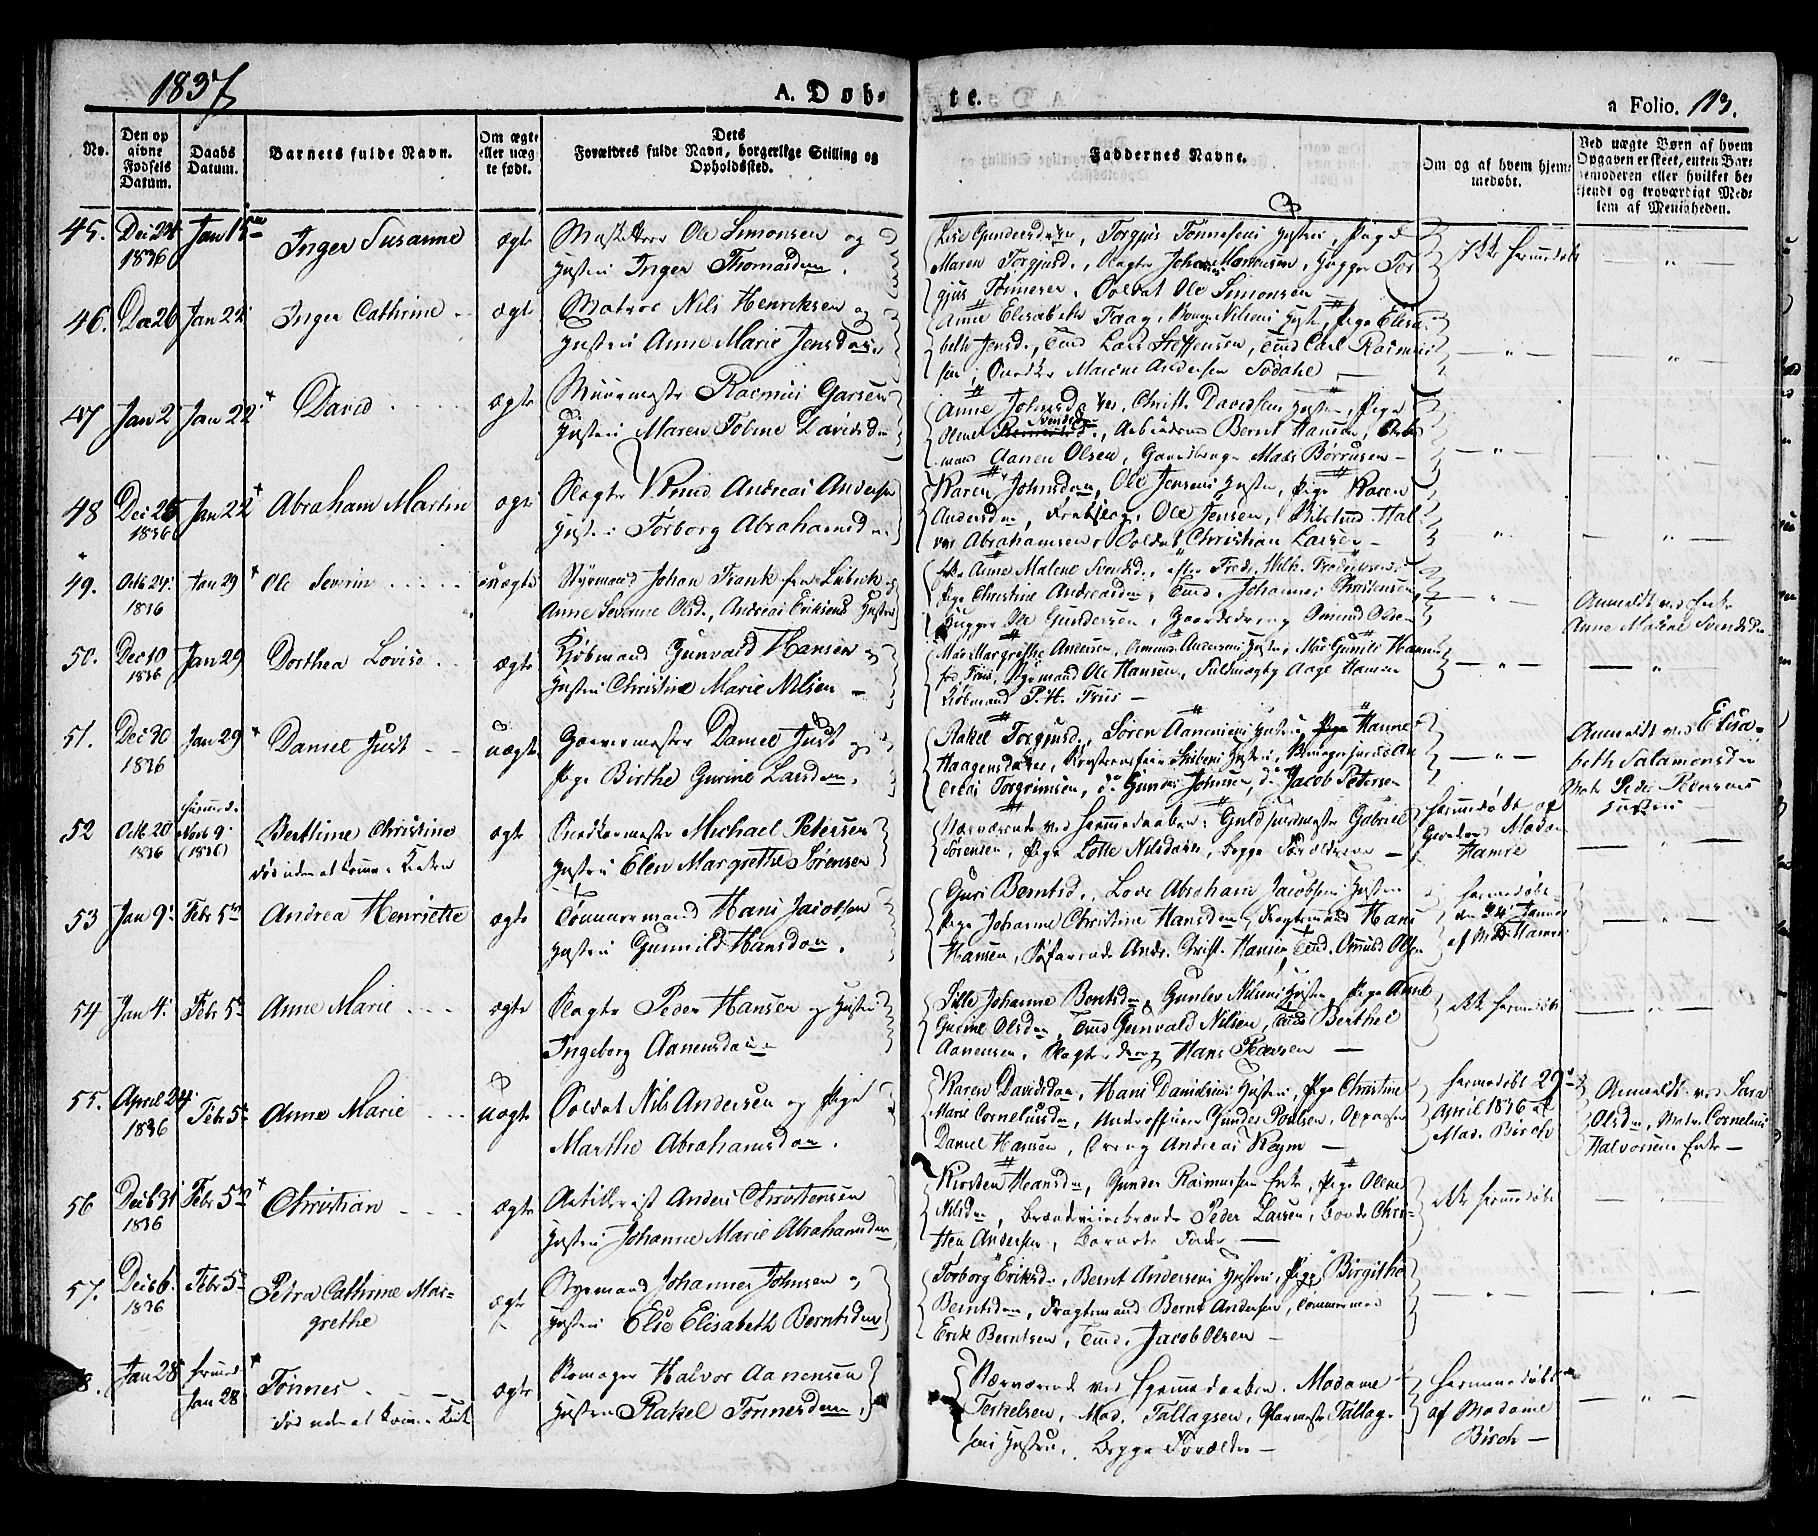 1837
A. Døb-
te.
a Folio. 113.
No.
Den op
givne
Fødsels
Datum.
Daabs
Datum.
Barnets fulde Navn.
Om ægte
eller uæg
te født.
Dets
Forældres fulde Navn, borgerlige Stilling og
Opholdssted.
Faddernes Navne.
Om og af hvem hjem-
medøbt.
Ved uægte Børn af hvem
Opgaven er skeet, enten Bar-
nemoderen eller hvilket be-
kjendt og troværdigt Med-
lem af Menigheden.
45. Dec 24 Jan 15
1836
Inger Susanne
ægte
Ole Simonsen og
Hustru Inger Thomasdtr.
Lise Gundersdatter, Torgjus Tønnesens Hustru, Pige
Maren Torgjusd., Slagter Johan Mortensen, Hugger Tor
gjus Tønnesen, Soldat Ole Simonsen
ikke hjemmedøbt
46. Dec 26 Jan 22 Inger Cathrine ægte
Matros Nils Henriksen og
Hustru Anne Marie Jensdatter
Anne Elisabeth Nilsens Hustru, Pige Elisa
beth Jensd., Tmd Lars Steffensen, Tmd Carl Rasmus
sen, Andersen Sodahl
47 Jan 2 Jan 22 David ægte
Muurmester Rasmus Garsen
Hustru Maren Tobine Davidsd
Anne Johnsdatter, Christ. Davidsens Hustru, Pige
Oline Svendsd., Arbeidsmd Bernt Hansen, Arbs
mand Aanen Olsen, Mads Børrusen
48 Dec 26 Jan 22 Abraham Martin ægte
1836
Slagter Knud Andreas Andersen
Hustru Torborg Abrahamsd
Karen Johnsdtr, Ole Jensens Hustru, Pige Karen
Andersdtr, Ole Jensen, Hal
vor Abrahamsen, Soldat Christian Larsen
49. Octb 24 Jan 29 Ole Severin uægte
1836
Styrmand Johan Frank fra Lübeck og
Anne Severine Olsd., Andreas Eriksens Hustru
Anne Malene Svendsd., efter Fredr. Wilh. Fredriksen,
Pige Christine Andreasdtr, Tmd. Johannes Christensen,
Hugger Ole Gundersen, Gaardsdreng Omund Olsen
Anmeldt ved Enke
Anne Malene Svendsdtr
50. Dec 10 Jan 29 Dorthea Lovise ægte
1836
Kjøbmand Gunvald Hansen og
Hustru Christine Marie Nilsen
Mad Margrethe Andersen, Omund Andersens Hustru, Mad Gunild Hansen
fød Friis, Styrmand Ole Hansen, Fuldmægtig Aage Hansen
Kjøbmand P. H. Friis
51. Dec 30 Jan 29 Daniel Just uægte
1836
Garvermester Daniel Just og
Pige Birthe Gurine Larsdtr.
Rakel Torgjusd., Søren Aanensens Hustru, Pige Hanne
Haagensdatter, Hustru, An
dreas Torgrimsen, do Gunder Johnsen, do Jacob Petersen
Anmeldt ved Elisa-
beth Salamonsdtr
Matr Peder Pedersens
Hustru
52 Octb 20 Novb 9 Berthine Christine ægte
1836 (1836)
død uden at komme i Kirken
Michael Petersen
Hustru Elen Margrethe Sørensen
Nærværende ved Hjemmedaaben: Guldsmedmester Gabriel
Sørensen, Pige Lotte Nilsdatter, begge Forældrene
hjemmedøbt af
Madam
Hamre
53 Jan 9 Febr 5 Andrea Henriette ægte
Tømmermand Hans Jacobsen
Hustru Gunnild Hansdtr.
Guri Berntsd., Lods Abraham Jacobsens Hustru
Pige Johanne Christine Hansdtr, Fragtemand Hans
Hansen, Søfarende Andr. Christ. Hansen, Tmd. Omund Olsen
hjemmedøbt
den 24 Januar
af Mad Hamre
54 Jan 4 Febr 5 Anne Marie ægte
Slagter Peder Hansen og Hustru
Ingeborg Aanensdatter
Sille Johanne Berntsdtr, Gunlev Nilsens Hustru, Pige Anne
Gurine Olsdtr, Tmd Gunvald Nilsen, Tmd Berthel
Aanensen, Slagterdreng Hans Pedersen
ikke hjemmedøbt
55. April 24 Febr 5 Anne Marie uægte
1836
Soldat Nils Andersen og Pige
Marthe Abrahamsdtr.
Karen Davidsdtr, Hans Danielsens Hustru, Pige Christine
Marie Corneliusdtr, Underofficeer Gunder Poulsen, Oppasser
Daniel Hansen, Dreng Andreas Keym
hjemmedøbt 29
April 1836 af
Mad. Birch
Anmeldt ved Sara
Olsdtr, Matr. Cornelius
Halvorsens Enke
56 Decb 31 Febr 5 Christian ægte
1836
Artillerist Anders Christensen
Hustru Johanne Marie Abrahamsdtr
Kirsten Hansdtr, Gunder Rasmussen Enke, Pige Oline
Nilsdtr, Brændeviinsbrænder Peder Larsen, Bonde Chris-
ten Andersen, Barnets Fader
ikke hjemmedøbt
57. Decb 6 Febr 5 Petra Cathrine Mar-
1836
grethe
ægte
Styrmand Johannes Johnsen og
Hustru Else Elisabeth Berntsdtr
Torborg Eriksd., Bernt Andersens Hustru, Pige Birgithe
Berntsdtr, Fragtemand Bernt Andersen, Tømmermd
Erik Berntsen, Tmd. Jacob Olsen
8. Jan 28 hjemmed Jan 28 Tønnes ægte
død uden at komme i Kirke
Halvor Aanensen
Hustru Rakel Tønnesdtr,
Nærværende ved Hjemmedaaben: Madame
Terkelsen, Mad. Tallagsen, Glarmester Tallag-
sens Hustru, begge Forældre
hjemmedøbt
af Madame
Birch